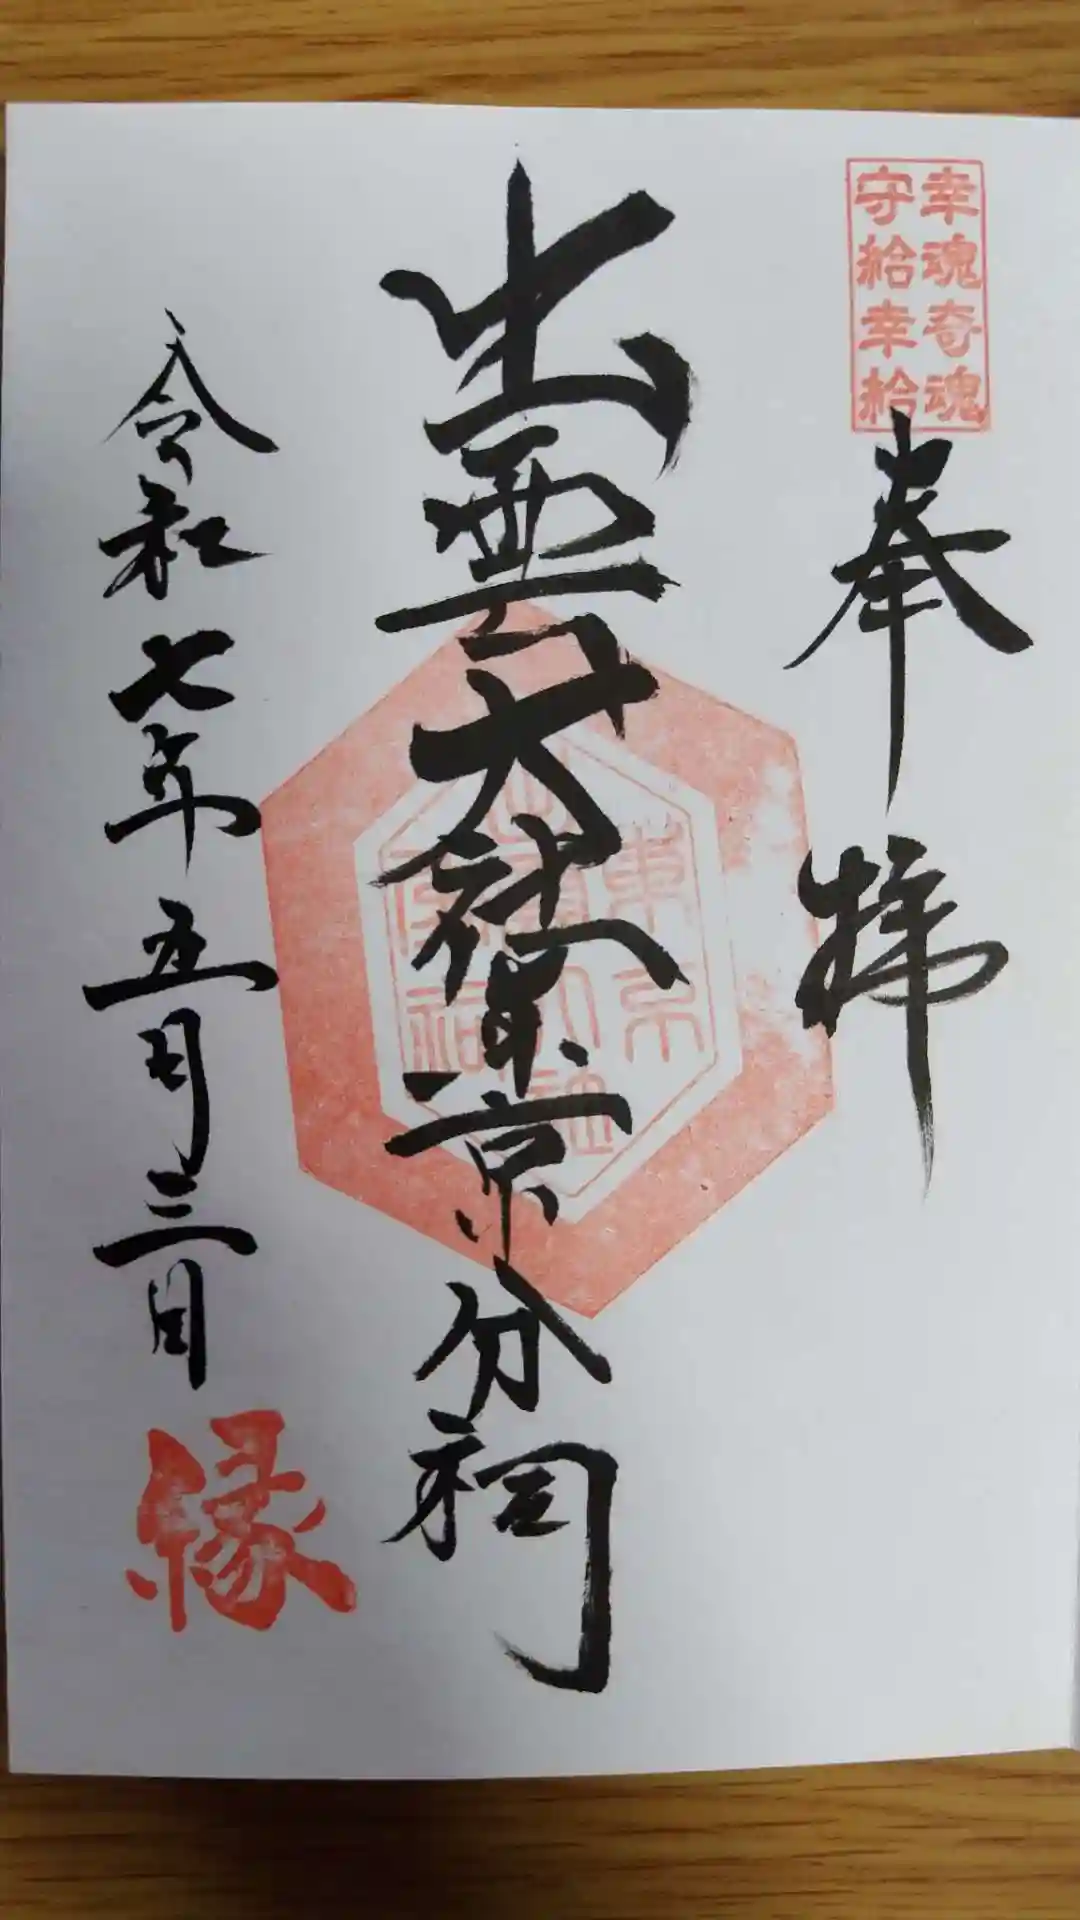 幸魂奇魂
守給幸給
奉拝
出雲大社東京分祠
令和七年五月三日
縁